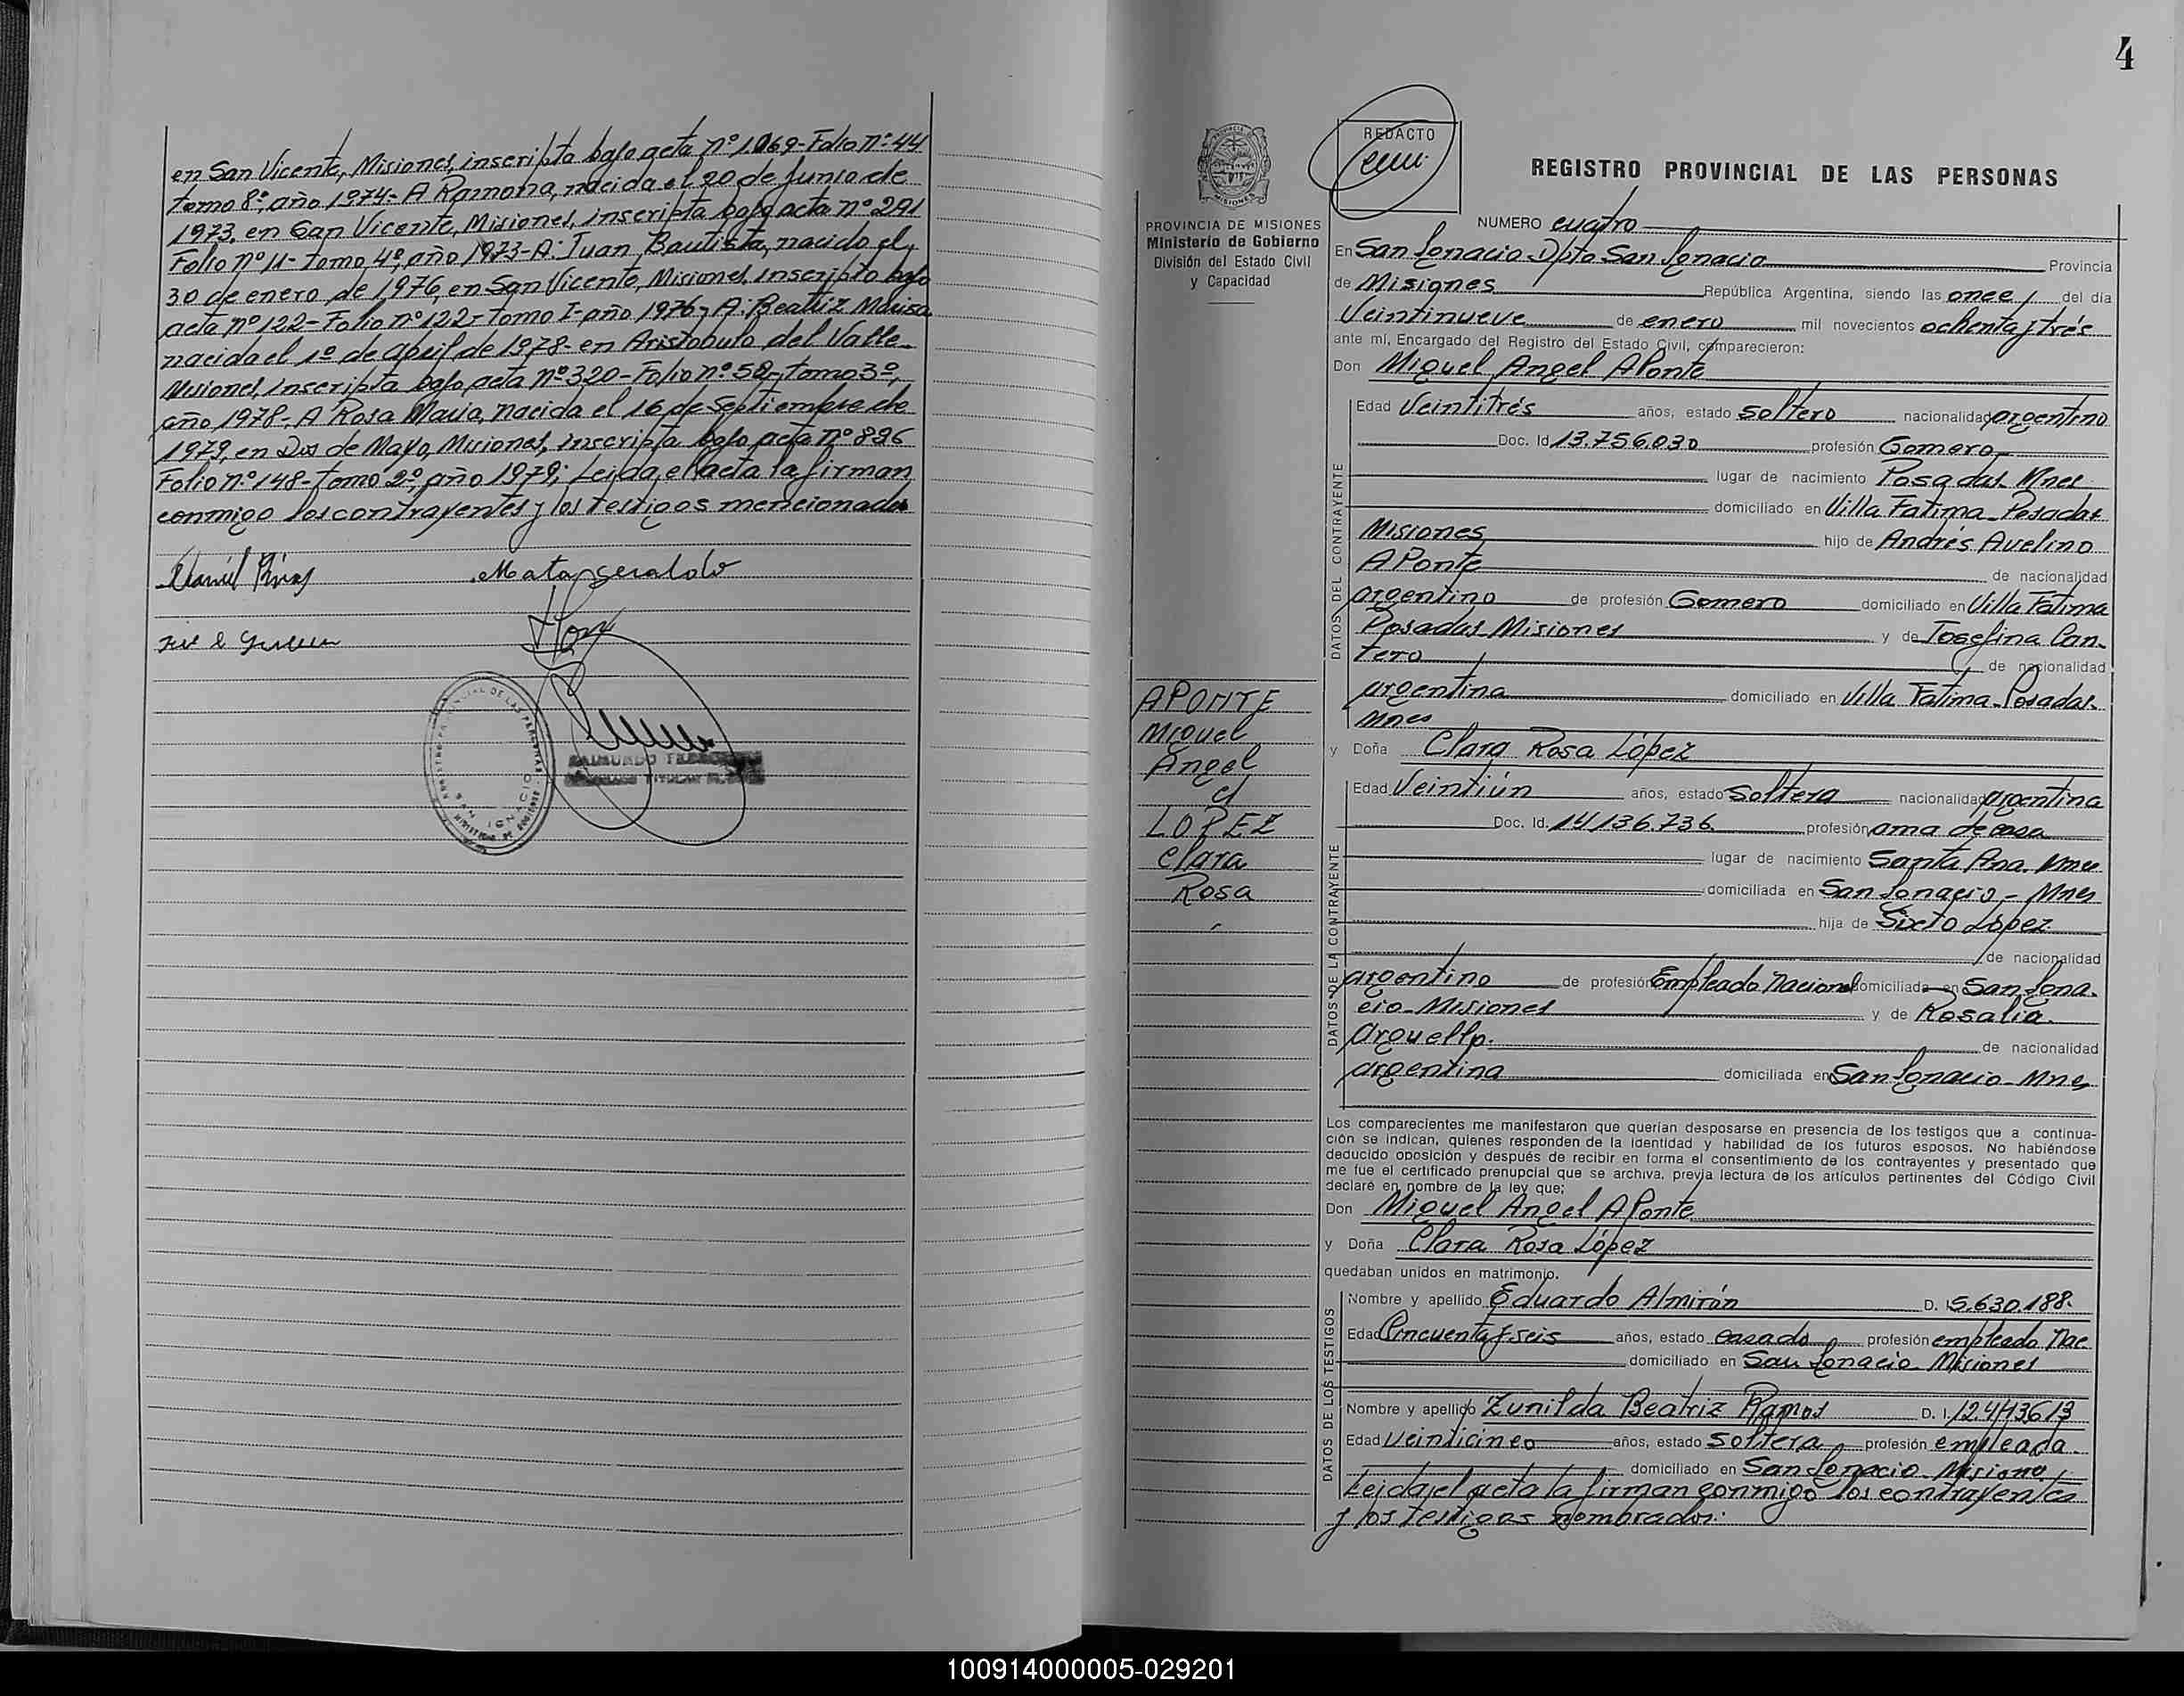 en San Vicente, Misiones, inscripta bajo acta nº 1.069- Folio nº: 44
tomo 8º, año 1974- A Ramona, nacida el 20 de Junio de
1973, en San Vicente, Misiones, inscripta bajo acta nº 291
Folio nº 11- tomo 4º, año 1973- A: Juan Bautista, nacido el
30 de enero de 1976, en San Vicente, Misiones, inscripto bajo
acta nº 122- Folio nº 122- tomo I- año 1976- A: Beatriz
nacida el 1º de abril de 1978- en Aristobulo del Valle
Misiones, inscripta bajo acta nº 320- Folio nº: 52- tomo 3º,
año 1978-, A Rosa Maria, nacida el 16 de Septiembre de
1979, en Dos de Mayo, Misiones, inscripta bajo acta nº 896
Folio nº: 148- tomo 2º, año 1979; Leida el acta la firman
conmigo los contrayentes y los testigos mencionados
Mata Geraldo
SAN IGNACIO
RAIMUNDO
TITULAR
4
REDACTO
REGISTRO PROVINCIAL DE LAS PERSONAS
PROVINCIA DE MISIONES
Ministerio de Gobierno
División del Estado Civil
y Capacidad
NUMERO cuatro
En San Ignacio Dpto San Ignacio Provincia
de Misiones República Argentina, siendo las once del día
Veintinueve de enero mil novecientos ochenta y trés
ante mí, Encargado del Registro del Estado Civil, comparecieron:
Don Miguel Angel Aponte
DATOS DEL CONTRAYENTE
Edad Veintitrés años, estado soltero nacionalidad argentino
Doc. Id 13.756.030 profesión Gomero
lugar de nacimiento Posadas Mnes
domiciliado en Villa Fatima - Posadas
Misiones hijo de Andrés Avelino
Aponte de nacionalidad
argentino de profesión Gomero domiciliado en Villa Fatima
Posadas Misiones y de Josefina Can-
tero de nacionalidad
argentina domiciliado en Villa Fatima - Posadas-
Mnes
APONTE
Miguel
Angel
y
LOPEZ
Clara
Rosa
y Doña Clara Rosa López
DATOS DE LA CONTRAYENTE
Edad Veintiún años, estado soltera nacionalidad argentina
Doc. Id. 14.136.736. profesión ama de casa
lugar de nacimiento Santa Ana. Mnes
domiciliada en San Ignacio - Mnes
hija de Sixto López
de nacionalidad
argentino de profesión Empleado Nacional domiciliada en San Igna-
cio - Misiones y de Rosalia
Arguello. de nacionalidad
argentina domiciliada en San Ignacio - Mnes
Los comparecientes me manifestaron que querían desposarse en presencia de los testigos que a continua-
ción se indican, quienes responden de la identidad y habilidad de los futuros esposos. No habiéndose
deducido oposición y después de recibir en forma el consentimiento de los contrayentes y presentado que
me fue el certificado prenupcial que se archiva, previa lectura de los artículos pertinentes del Código Civil
declaré en nombre de la ley que;
Don Miguel Angel Aponte
y Doña Clara Rosa López
quedaban unidos en matrimonio.
DATOS DE LOS TESTIGOS
Nombre y apellido Eduardo Almirón D. I. 5.630.188.
Edad Cincuenta y seis años, estado casado profesión empleado Nac
domiciliado en San Ignacio Misiones
Nombre y apellido Zunilda Beatriz Ramos D. I. 12.413613
Edad Veinticinco años, estado soltera profesión empleada
domiciliado en San Ignacio - Misiones
Leida el acta la firman conmigo los contrayentes
y los testigos nombrados:
100914000005-029201